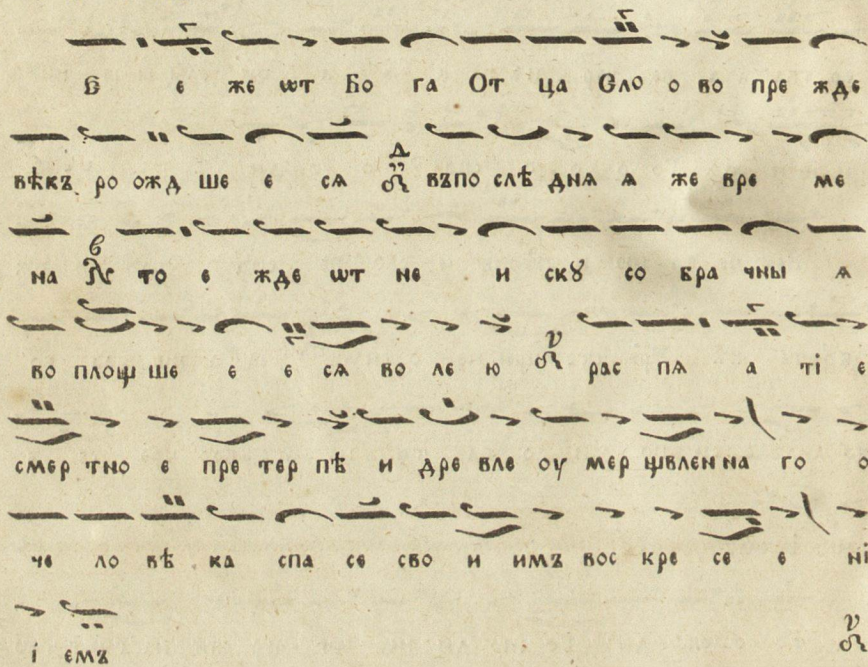 Є е же ѡт Бо га От ца Сло о во пре жде
вѣкъ ро ожд ше е сѧ въпо слѣ днѧ ѧ же вре ме
на то е жде ѡт не и скꙋ со бра чны ѧ
во площ ше е е сѧ во ле ю рас пѧ а ті е
смер тно е пре тер пѣ и дре вле оу мер щвлен на го о
че ло вѣ ка спа се сво и имъ вос кре се е ні
і емъ